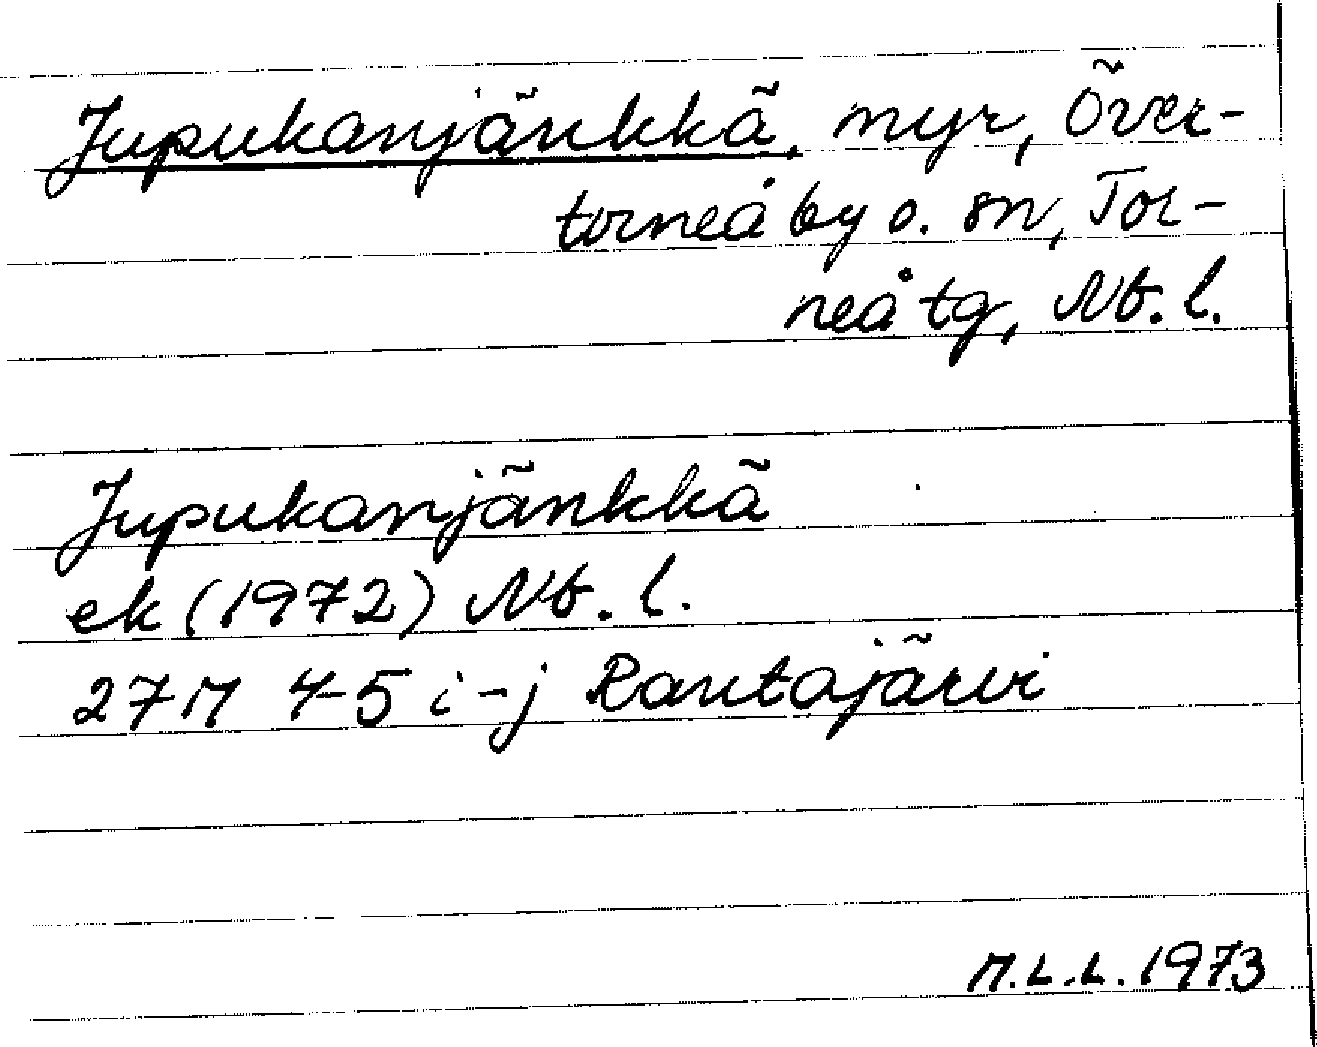 Jupukanjänkkä, myr, Över-
torneå by o. sn, Tor-
neå tg, Nb. l.
Jupukanjänkkä
ek (1972) Nb. l.
27M 4-5 i-j Rantajärvi
M.L.L. 1973